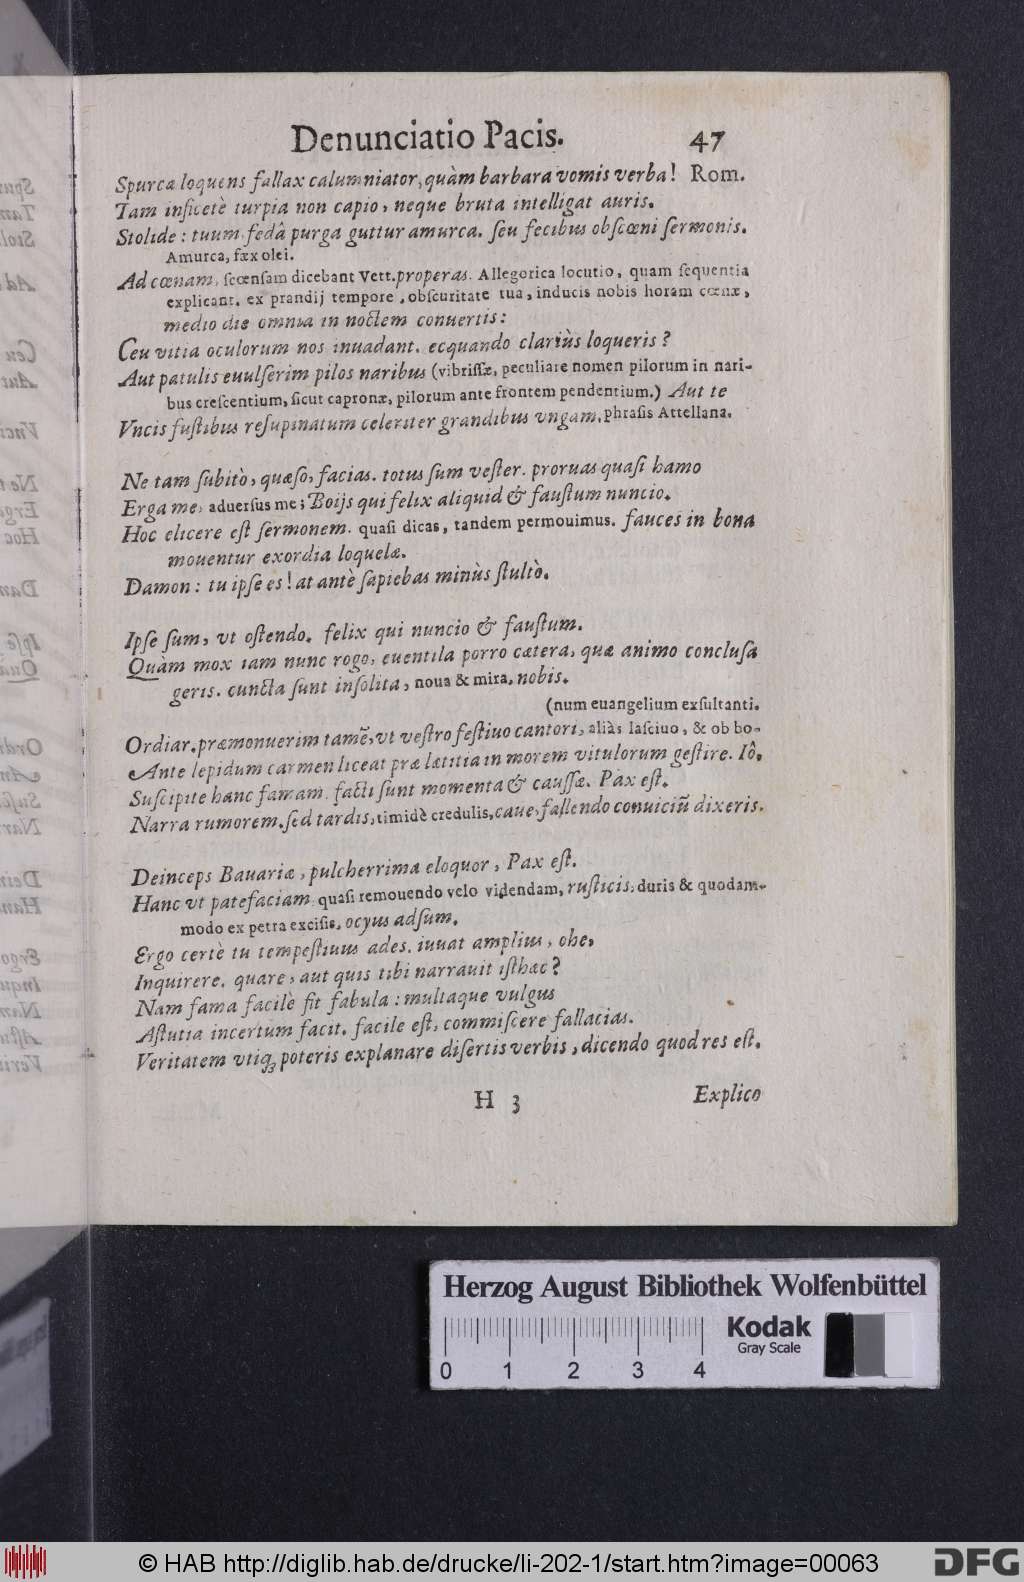 Denunciatio Pacis. 47
Spurca loquens fallax calumniator, quàm barbara vomis verba! Rom.
Tam inficetè turpia non capio, neque bruta intelligat auris.
Stolide: tuum, fedâ purga guttur amurca. seu fecibus obscœni sermonis.
Amurca, fæx olei.
Ad cœnam, secensam dicebant Vett. properas. Allegorica locutio, quam sequentia
explicant. ex prandij tempore, obscuritate tua, inducis nobis horam cœnæ,
medio die omnia in noctem conuertis:
Ceu vitia oculorum nos inuadant. ecquando clariùs loqueris?
Aut patulis euulserim pilos naribus (vibrissæ, peculiare nomen pilorum in nari-
bus crescentium, sicut capronæ, pilorum ante frontem pendentium.) Aut te
Vncis fustibus resupinatum celeriter grandibus vngam. phrasis Attellana.
Ne tam subitò, quæso, facias. totus sum vester. proruas quasi hamo
Erga me, aduersus me; Boijs qui felix aliquid & faustum nuncio.
Hoc elicere est sermonem. quasi dicas, tandem permouimus. fauces in bona
mouentur exordia loquelæ.
Damon: tu ipse es! at antè sapiebas minùs stultò.
Ipse sum, vt ostendo. felix qui nuncio & faustum.
Quàm mox iam nunc rogo, euentila porro cætera, quæ animo conclusa
geris. cuncta sunt insolita, noua & mira, nobis.
(num euangelium exsultanti.
Ordiar. præmonuerim tamē, vt vestro festiuo cantori, aliàs lasciuo, & ob bo-
Ante lepidum carmen liceat præ lætitia in morem vitulorum gestire. Iô.
Suscipite hanc famam. facti sunt momenta & caussæ. Pax est.
Narra rumorem. sed tardis, timidè credulis, caue, fallendo conuiciū dixeris.
Deinceps Bauariæ, pulcherrima eloquor, Pax est.
Hanc vt patefaciam, quasi remouendo velo videndam, rusticis, duris & quodam-
modo ex petra excisis, ocyus adsum.
Ergo certè tu tempestiuus ades. iuuat amplius, ohe,
Inquirere. quare, aut quis tibi narrauit isthæc?
Nam fama facilè fit fabula: multaque vulgus
Astutia incertum facit. facile est, commiscere fallacias.
Veritatem vtiq; poteris explanare disertis verbis, dicendo quod res est.
H 3 Explico
Herzog August Bibliothek Wolfenbüttel
Kodak
Gray Scale
0 1 2 3 4
© HAB http://diglib.hab.de/drucke/li-202-1/start.htm?image=00063 DFG